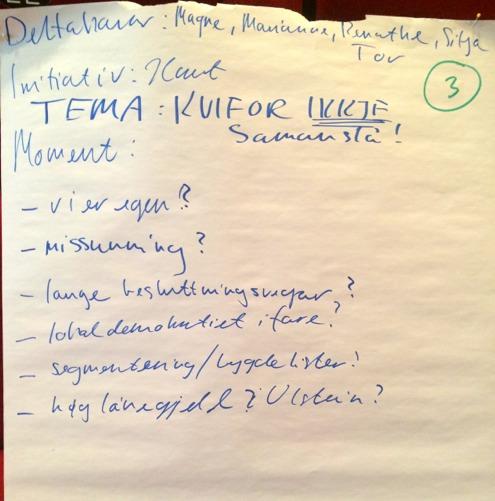 Deltakarar: Magne, Marianne, Renathe, Silja
Tor
Initiativ: Knut
3
TEMA: KVIFOR IKKJE
Samanslå!
Moment:
- vi er eigen?
- missunning?
- lange beslutningsvegar?
- lokaldemokratiet i fare?
- segmentering/bygdelister!
- høg lånegjeld i Ulstein?